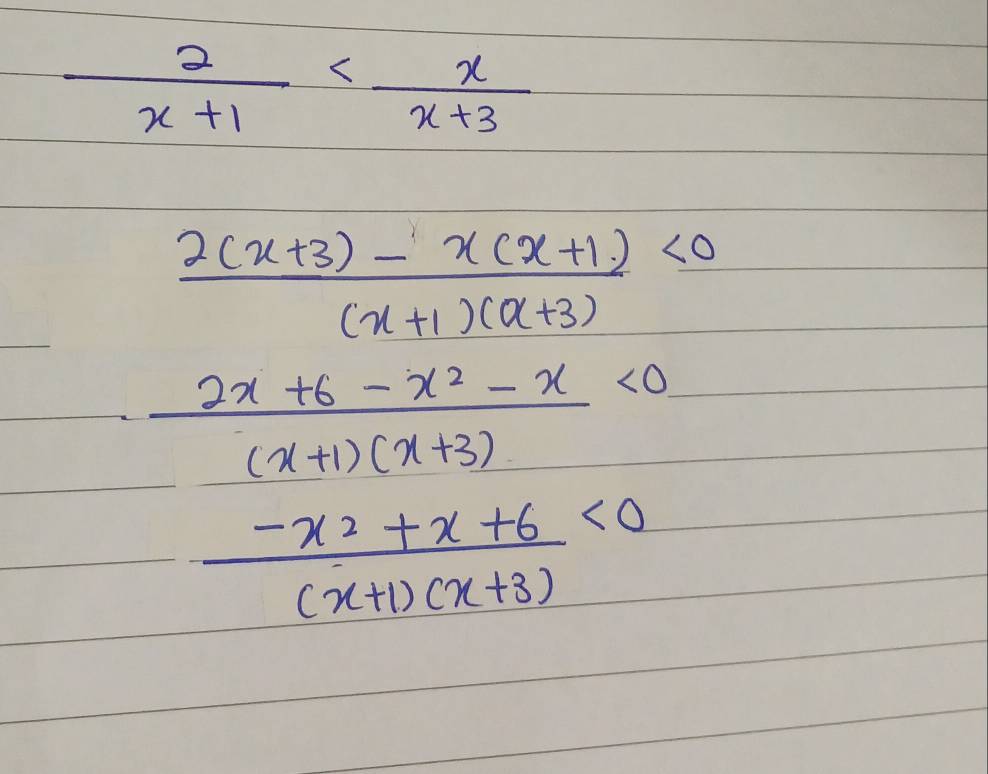 2/(x+1) < x/(x+3)
(2(x+3) - x(x+1))/((x+1)(x+3)) <0
(2x+6-x²-x)/((x+1)(x+3)) <0
(-x²+x+6)/((x+1)(x+3)) <0